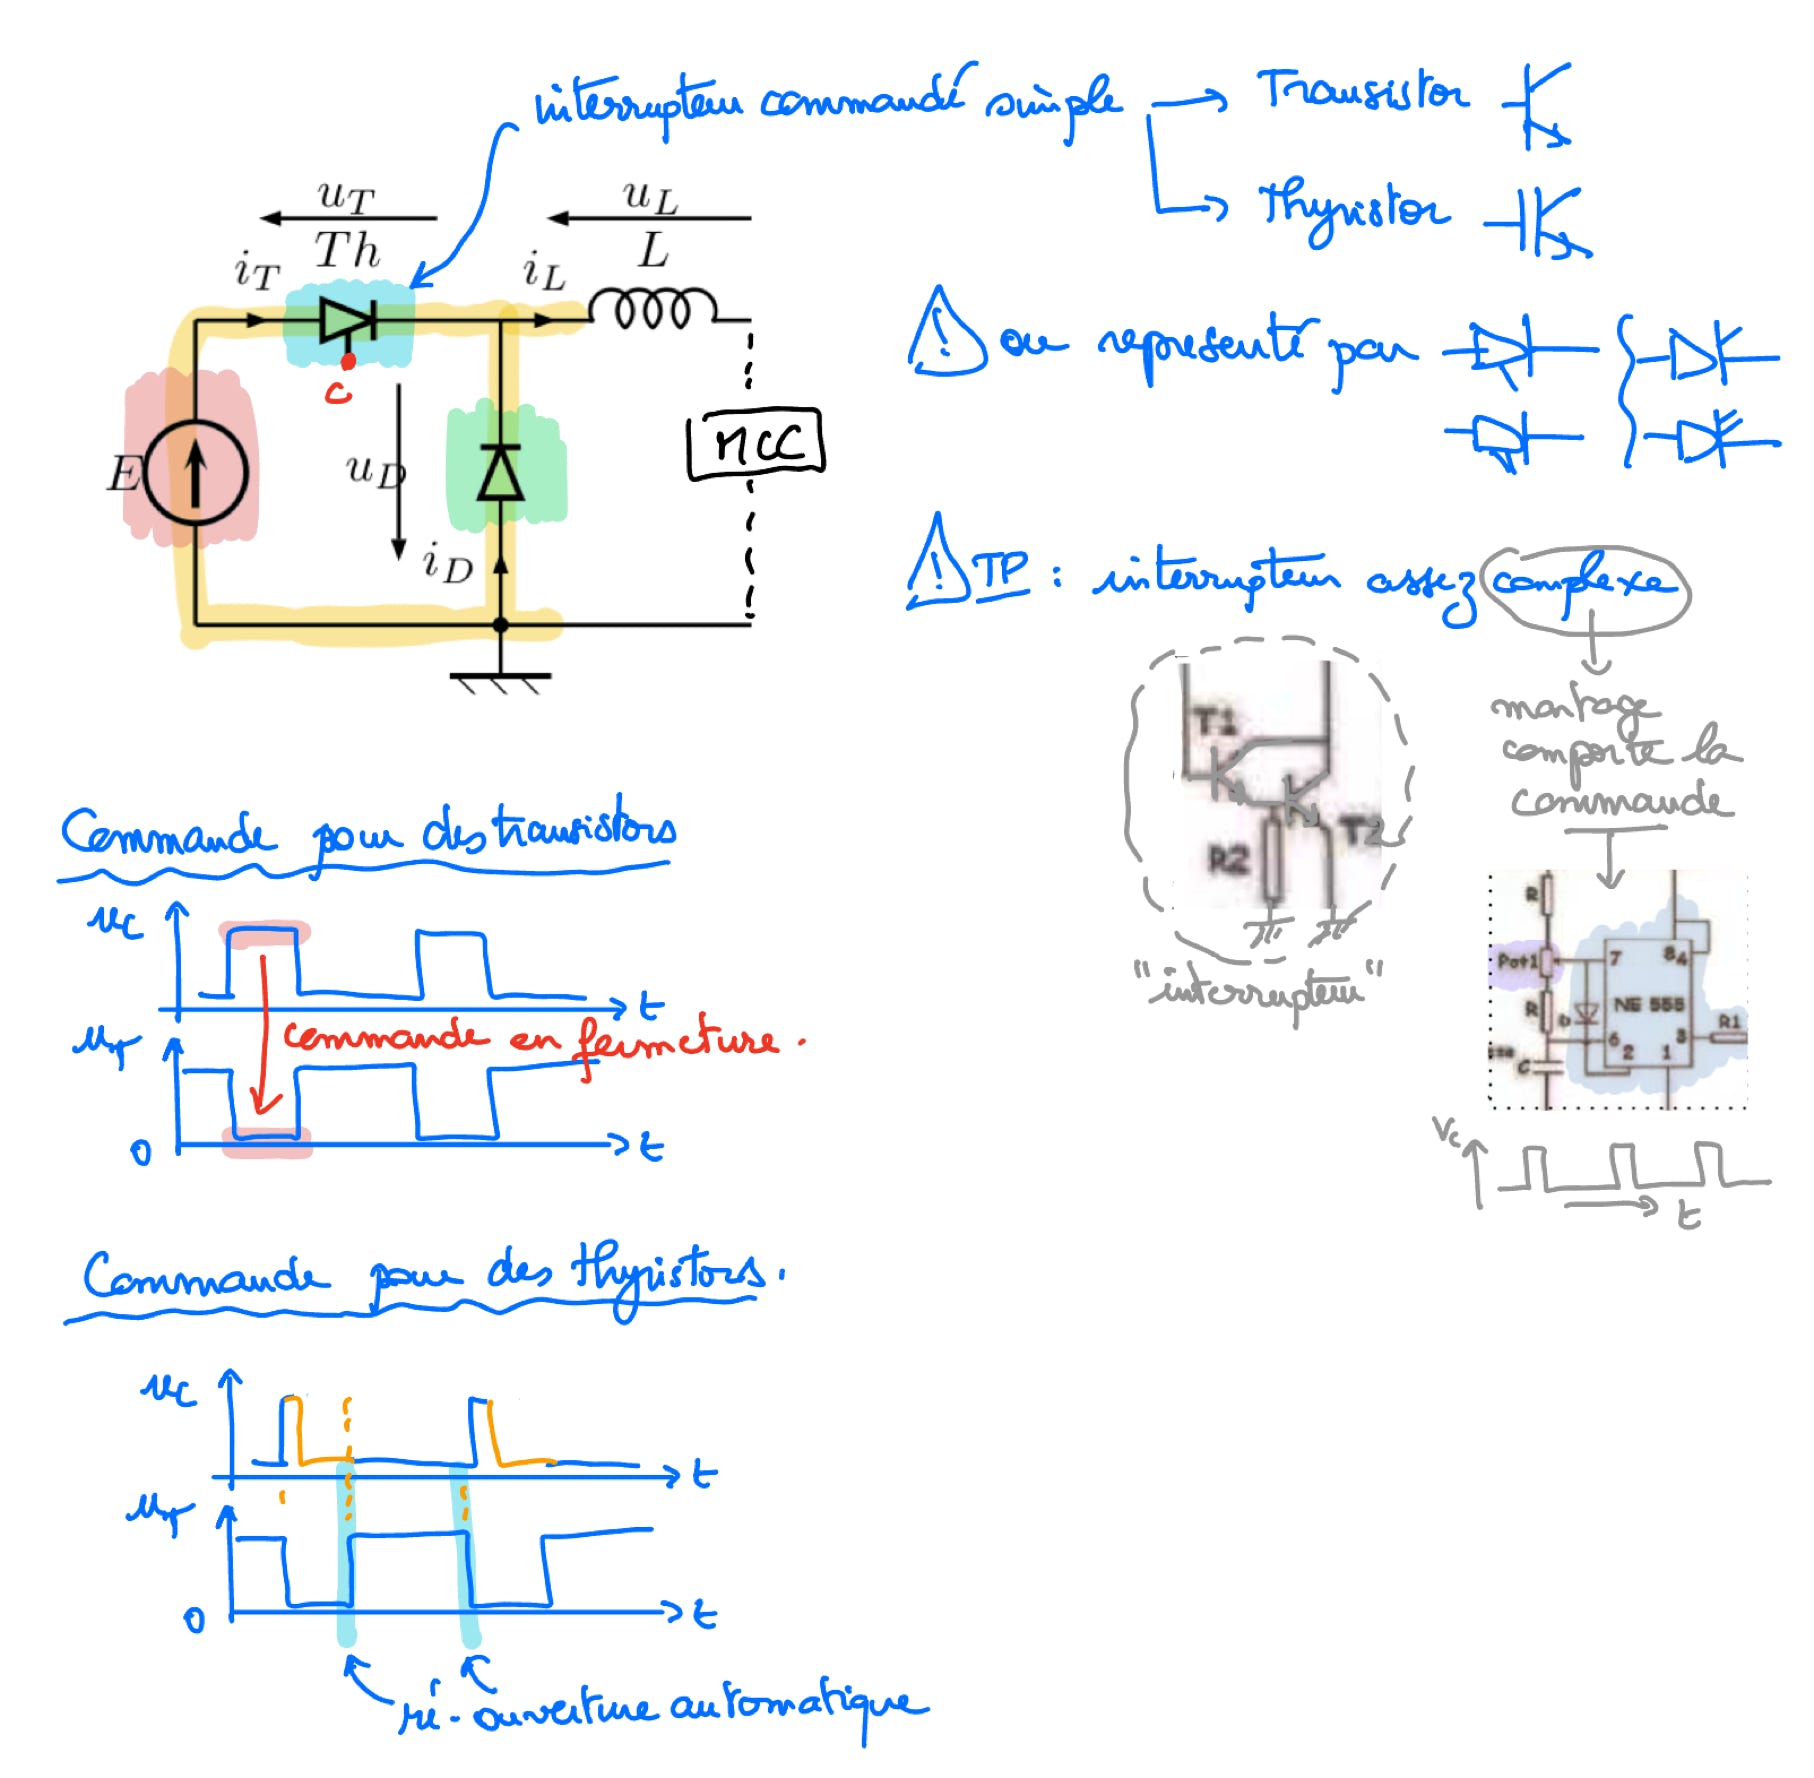 interrupteur commandé simple → Transistor
→ Thyristor
u_T
Th
i_T
u_L
L
i_L
C
E
u_D
i_D
MCC
! ou représenté par
! TP : interrupteur assez complexe
montage
comporte la
commande
T1
R2
T2
"interrupteur"
R
Pot1
7
84
NE 555
R
D
6
2
1
3
R1
C
Vc
t
Commande pour des transistors
u_C
t
commande en fermeture.
u_T
0
t
Commande pour des thyristors.
u_C
t
u_T
0
t
ré-ouverture automatique